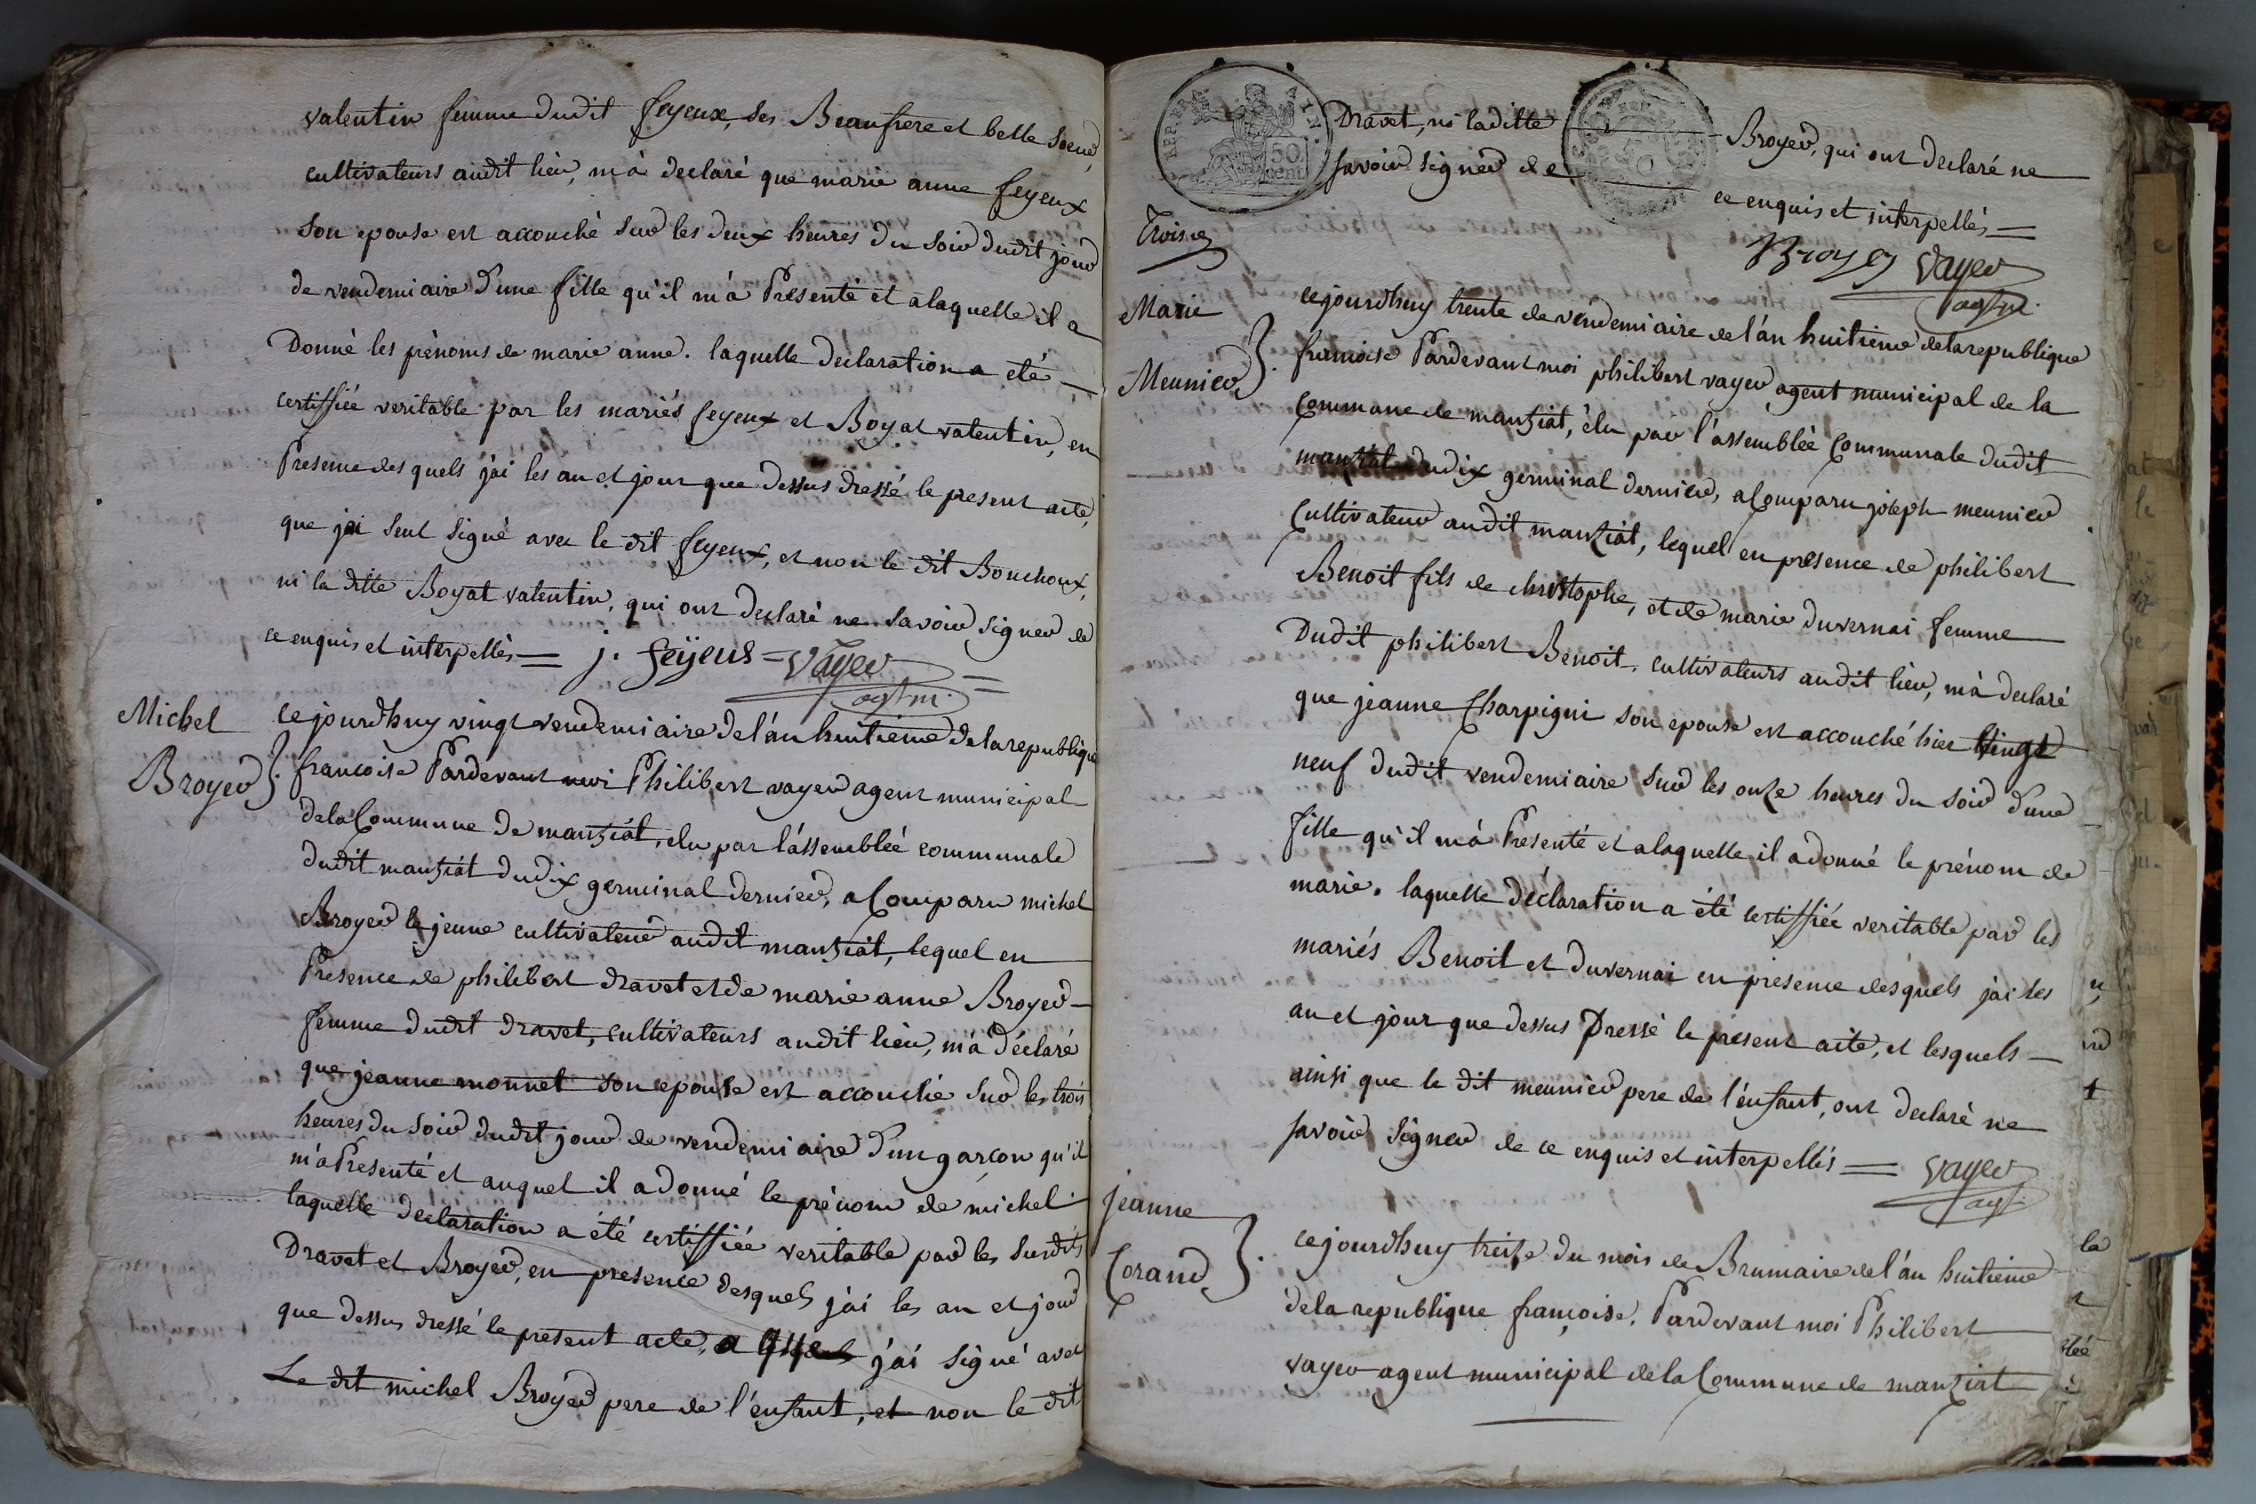 valentin femme dudit feyeux, ses Beaufrere et belle soeur
cultivateurs audit lieu, m'a declaré que marie anne feyeux
son epouse est accouché sur les deux heures du soir dudit jour
de vendemiaire d'une fille qu'il m'a Presenté et a laquelle il a
Donné les prénoms de marie anne. laquelle declaration a eté
certiffiée veritable par les mariés feyeux et Boyat valentin, en
Presence des quels j'ai les an et jour que dessus dressé le present acte,
que jai seul signé avec le dit feyeux, et non le dit Bouchoux,
ni la ditte Boyat valentin, qui ont declaré ne savoir signer de
ce enquis et interpellés = j. feÿeus = Vayer
agt m.
Michel
Broyer
ce jourdhuy vingt vendemiaire de l'an huitieme de la republique
francoise Pardevant moi Philibert vayer agent municipal
de la Commune de manziat, elu par l'assemblée communale
dudit manziat du dix germinal dernier, a Comparu michel
Broyer le jeune cultivateur audit manziat, lequel en
Presence de philibert dravet et de marie anne Broyer
femme dudit dravet, cultivateurs audit lieu, m'a déclaré
que jeanne monnet son epouse est accouchée sur les trois
heures du soir dudit jour de vendemiaire d'un garcon qu'il
m'a Presenté et auquel il a donné le prénom de michel.
laquelle declaration a été certiffiée veritable par les susdits
Dravet et Broyer, en presence desquels j'ai les an et jour
que dessus dressé le present acte, j'ai signé avec
Le dit michel Broyer pere de l'enfant, et non le dit
REP. FRA.
50
cent
Dravet, ni laditte Broyer, qui ont declaré ne
savoir signer de ce enquis et interpellés =
Broyer Vayer
agt m.
Marie
Meunier
ce jourdhuy trente de vendemiaire de l'an huitieme de la republique
francoise Pardevant moi philibert vayer agent municipal de la
Commune de manziat, élu par l'assemblée Communale dudit
manziat du dix germinal dernier, a Comparu joseph meunier
Cultivateur audit manziat, lequel en presence de philibert
Benoit fils de christophe, et de marie duvernai femme
Dudit philibert Benoit, cultivateurs audit lieu, m'a declaré
que jeanne Charpigni son epouse est accouché hier vingt
neuf dudit vendemiaire sur les onze heures du soir d'une
fille qu'il m'a Presenté et a laquelle il a donné le prénom de
marie. laquelle déclaration a été certiffiée veritable par les
mariés Benoit et duvernai en presence desquels j'ai les
an et jour que dessus Dressé le present acte, et lesquels
ainsi que le dit meunier pere de l'enfant, ont declaré ne
savoir signer de ce enquis et interpellés = Vayer
agt.
jeanne
Corand
ce jourdhuy treize du mois de Brumaire de l'an huitieme
de la republique françoise. Pardevant moi Philibert
vayer agent municipal de la Commune de manziat